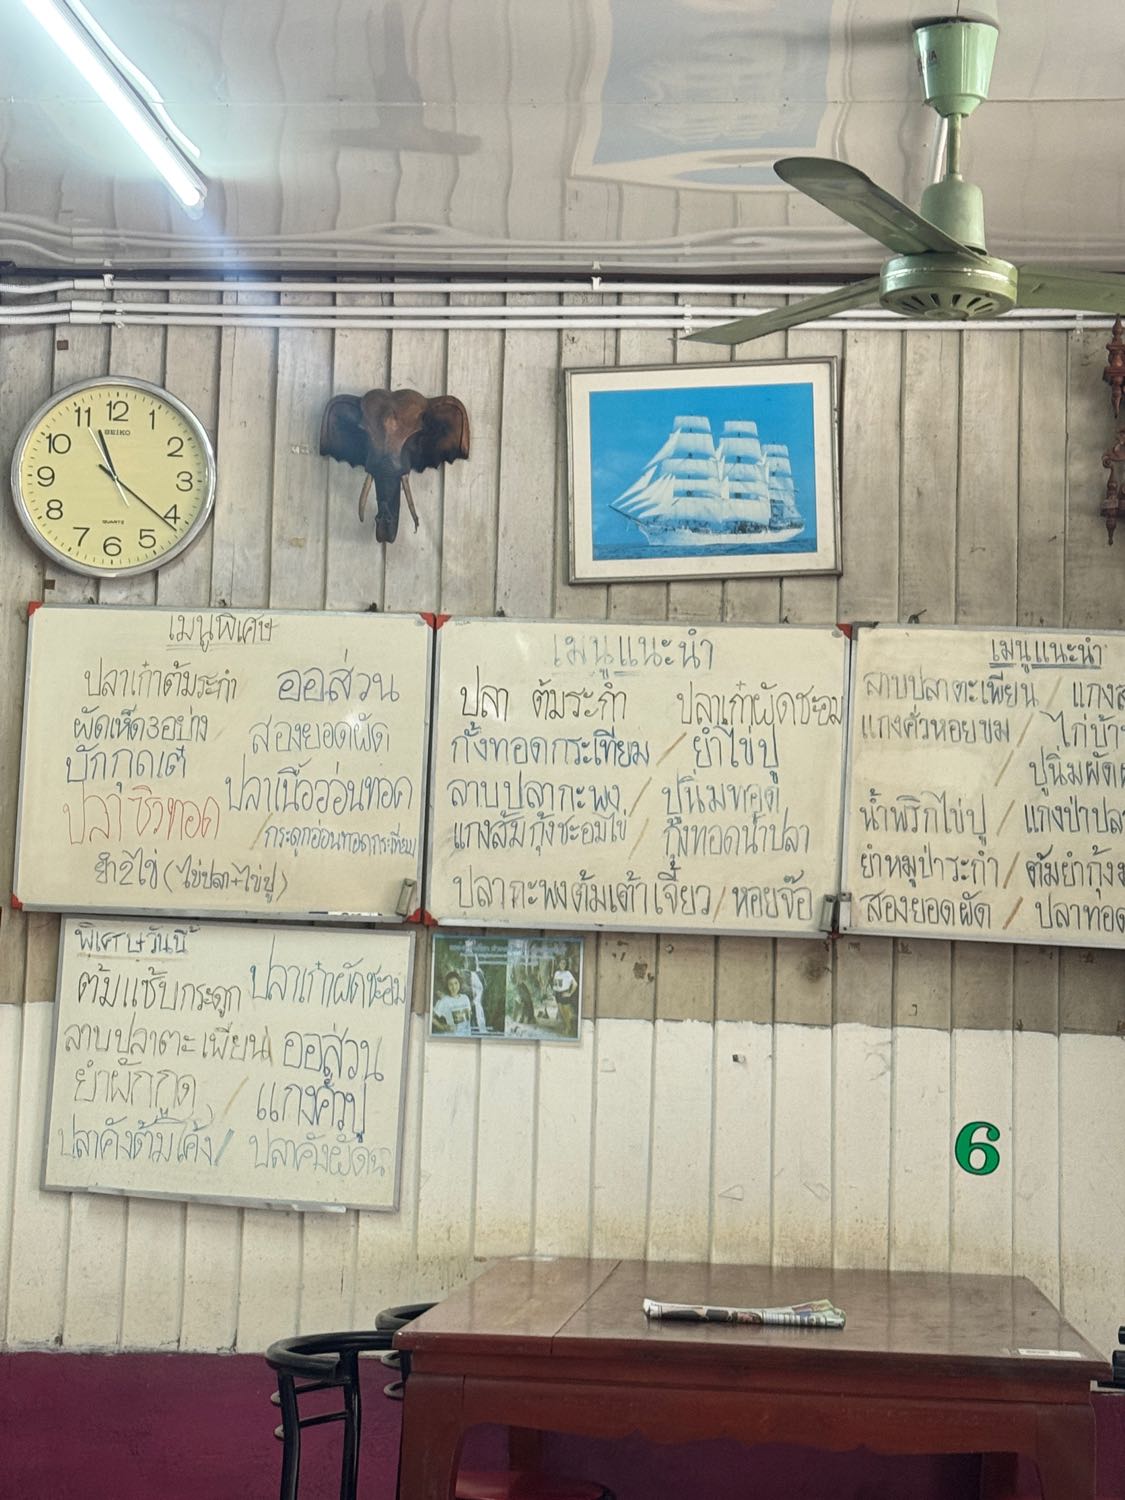 11 12 1
10 SEIKO 2
9 3
8 QUARTZ 4
7 6 5
เมนูพิเศษ
ปลาเก๋าต้มระกำ ออส่วน
ผัดเห็ด3อย่าง สองยอดผัด
บักกุดเต๋ ปลาเนื้ออ่อนทอด
ปลาซิวทอด / กระดูกอ่อนทอดกระเทียม
ยำ2ไข่ (ไข่ปลา+ไข่ปู)
เมนูแนะนำ
ปลา ต้มระกำ ปลาเก๋าผัดชะอม
กุ้งทอดกระเทียม / ยำไข่ปู
ลาบปลากะพง / ปูนิ่มทอด
แกงส้มกุ้งชะอมไข่ / กุ้งทอดน้ำปลา
ปลากะพงต้มเต้าเจี้ยว / หอยจ๊อ
เมนูแนะนำ
ลาบปลาตะเพียน / แกงส
แกงคั่วหอยขม / ไก่บ้า
/ ปูนิ่มผัด
น้ำพริกไข่ปู / แกงป่าปลา
ยำหมูป่าระกำ / ต้มยำกุ้ง
สองยอดผัด / ปลาทอด
พิเศษวันนี้
ต้มแซ่บกระดูก ปลาเก๋าผัดชะอม
ลาบปลาตะเพียน ออส่วน
ยำผักกูด / แกงคั่วปู
ปลาคังต้มโคล้ง / ปลาคังผัดฉ่า
6